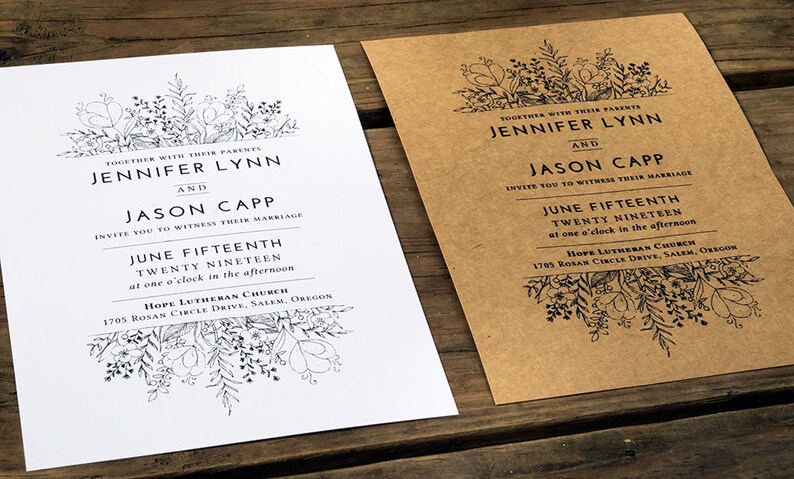 TOGETHER WITH THEIR PARENTS
JENNIFER LYNN
AND
JASON CAPP
INVITE YOU TO WITNESS THEIR MARRIAGE
JUNE FIFTEENTH
TWENTY NINETEEN
at one o'clock in the afternoon
HOPE LUTHERAN CHURCH
1705 ROSAN CIRCLE DRIVE, SALEM, OREGON
TOGETHER WITH THEIR PARENTS
JENNIFER LYNN
AND
JASON CAPP
INVITE YOU TO WITNESS THEIR MARRIAGE
JUNE FIFTEENTH
TWENTY NINETEEN
at one o'clock in the afternoon
HOPE LUTHERAN CHURCH
1705 ROSAN CIRCLE DRIVE, SALEM, OREGON